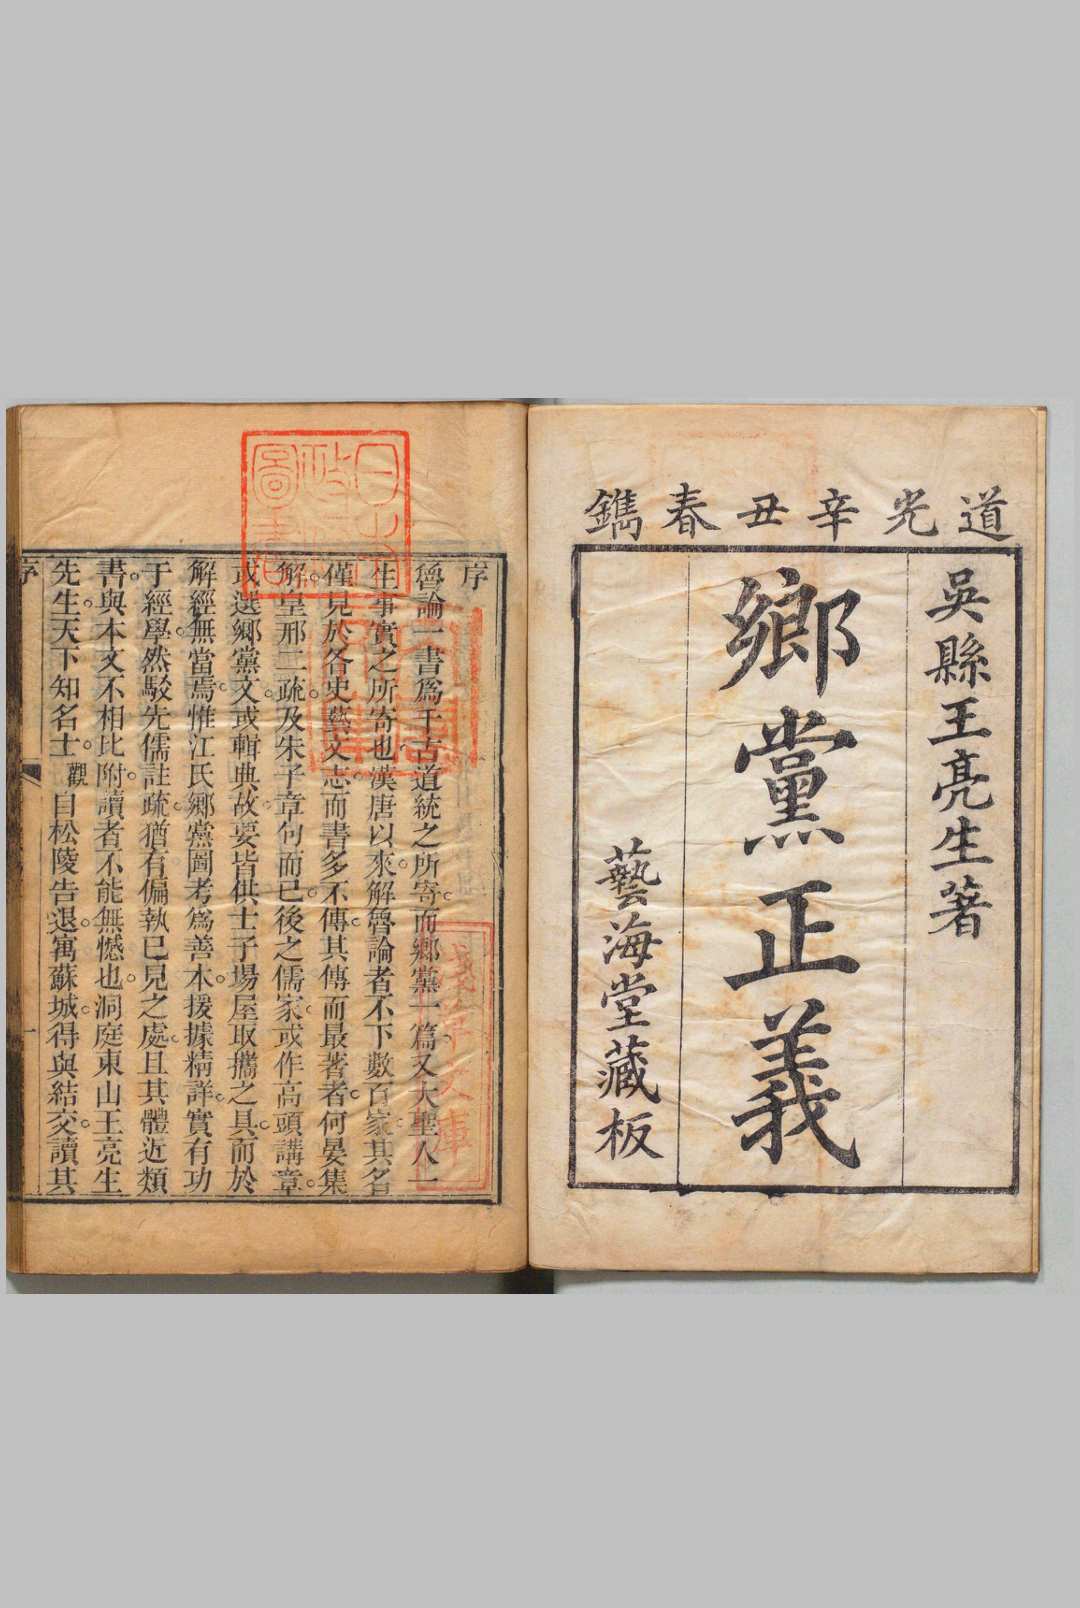 道光辛丑春鐫
吳縣王亮生著
鄉黨正義
藝海堂藏板
序
魯論一書爲千古道統之所寄而鄉黨一篇又大聖人一
生事實之所寄也漢唐以來解魯論者不下數百家其名
僅見於各史藝文志而書多不傳其傳而最著者何晏集
解皇邢二疏及朱子章句而已後之儒家或作高頭講章
或選鄉黨文或輯典故要皆供士子場屋取攜之具而於
解經無當焉惟江氏鄉黨圖考爲善本援據精詳實有功
于經學然駁先儒註疏猶有偏執已見之處且其體近類
書與本文不相比附讀者不能無憾也洞庭東山王亮生
先生天下知名士觀自松陵告退寓蘇城得與結交讀其
序
一